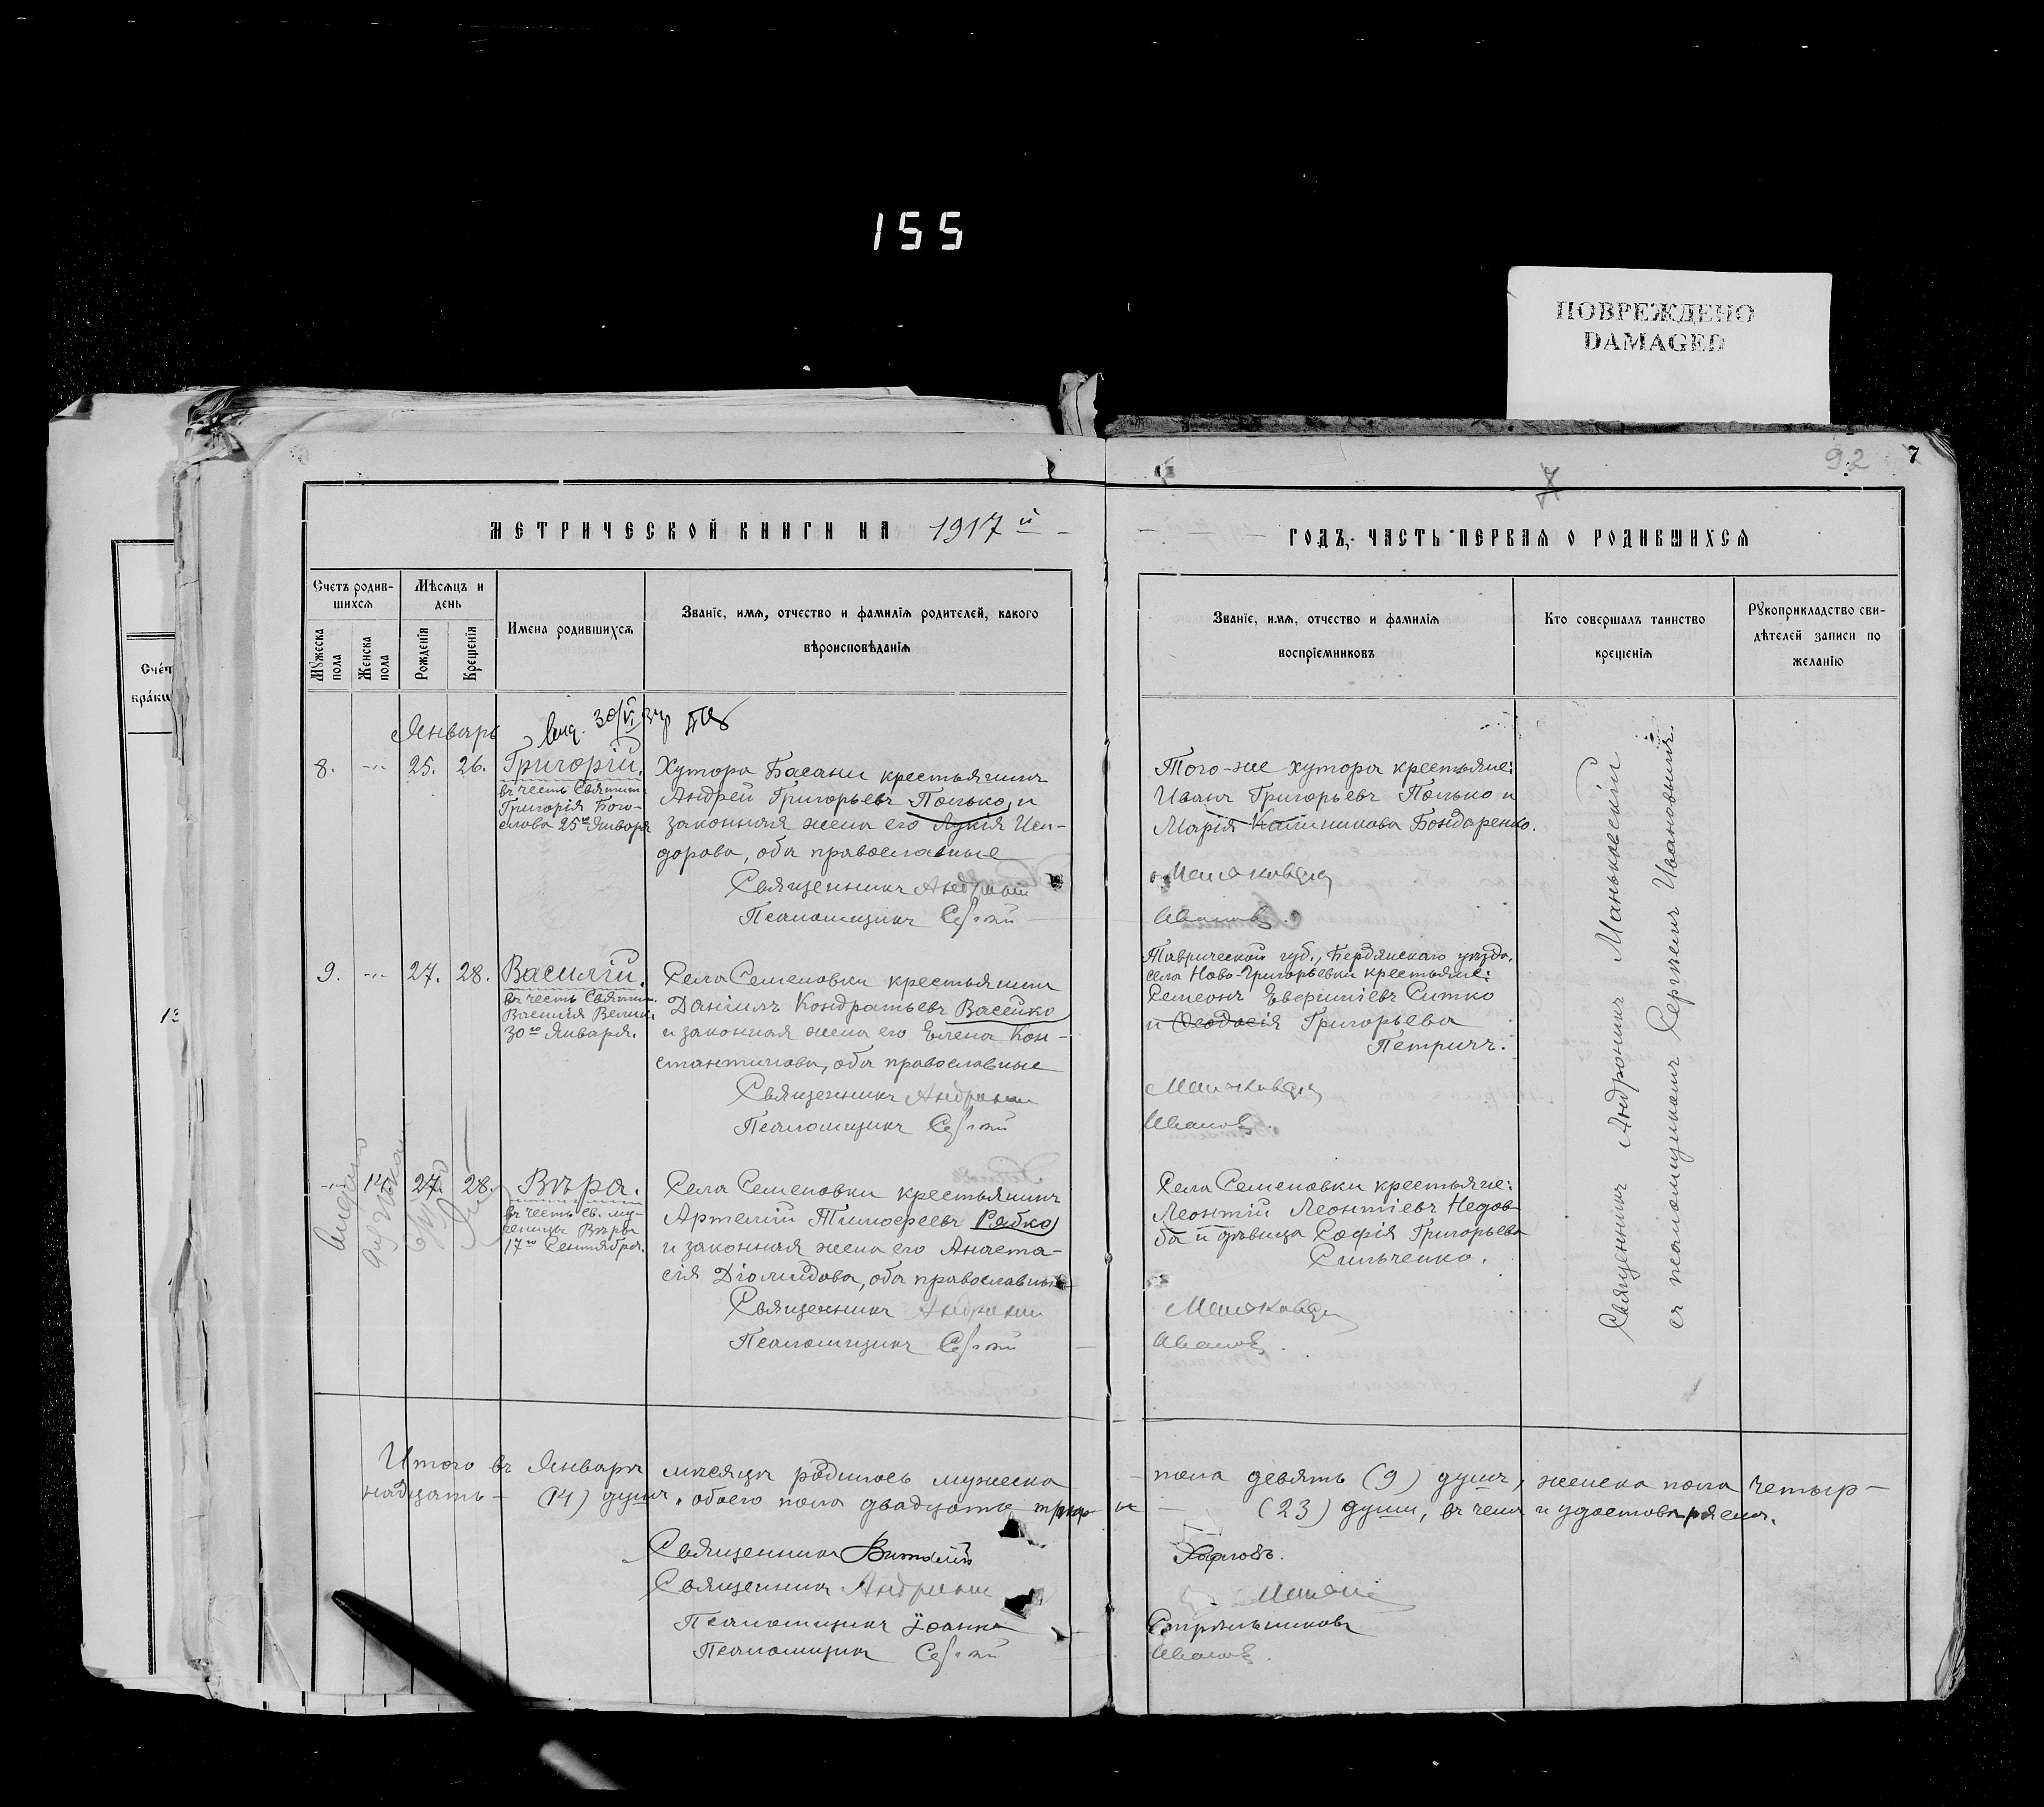 155
ПОВРЕЖДЕНО
DAMAGED
92 7
7
МЕТРИЧЕСКОЙ КНИГИ НА 1917й
ГОДЪ, ЧАСТЬ ПЕРВАЯ О РОДИВШИХСЯ
Счетъ родив-
шихся
Мѣсяцъ и
день
Мужеска
пола
Женска
пола
Рожденія
Крещенія
Имена родившихся
Званіе, имя, отчество и фамилія родителей, какого
вѣроисповѣданія
Званіе, имя, отчество и фамилія
воспріемниковъ
Кто совершалъ таинство
крещенія
Рукоприкладство сви-
дѣтелей записи по
желанію
Счет
браки
13
Январь
8. -"- 25. 26. Григорій.
въ честь Святит.
Григорія Бого-
слова 25го Января
Хутора Басани крестьянинъ
Андрей Григорьевъ Полько, и
законная жена его Лукія Иси-
дорова, оба православные
Священникъ Андроникъ
Псаломщикъ Сергій
Того-же хутора крестьяне:
Иванъ Григорьевъ Полько и
Марія Калиникова Бондаренко.
Маньковскій
Ивановъ.
9. -"- 27. 28. Василій.
въ честь Святит.
Василія Велик.
30го Января.
Села Семеновки крестьянинъ
Даніилъ Кондратьевъ Васейко
и законная жена его Елена Кон-
стантинова, оба православные
Священникъ Андроникъ
Псаломщикъ Сергій
Таврической губ., Бердянскаго уѣзда,
села Ново-Григорьевки крестьяне:
Симеонъ Евфиміевъ Ситко
и Ѳеодосія Григорьева
Петричъ.
Маньковскій
Ивановъ.
-"- 14. 27. 28. Вѣра.
въ честь св. му-
ченицы Вѣры
17го Сентября.
Села Семеновки крестьянинъ
Артемій Тимоѳеевъ Рябко
и законная жена его Анаста-
сія Діомидова, оба православные
Священникъ Андроникъ
Псаломщикъ Сергій
Села Семеновки крестьяне:
Леонтій Леонтіевъ Недов-
ба и дѣвица Софія Григорьева
Сильченко.
Маньковскій
Ивановъ.
Священникъ Андроникъ Маньковскій
съ псаломщикомъ Сергіемъ Ивановымъ.
Итого въ Январѣ мѣсяцѣ родилось мужеска пола девять (9) душъ, женска пола четыр-
надцать (14) душъ, обоего пола двадцать три (23) души, въ чемъ и удостовѣряемъ.
Священникъ Виталій
Священникъ Андроникъ
Псаломщикъ Іоаннъ Стрѣльниковъ
Псаломщикъ Сергій Ивановъ.